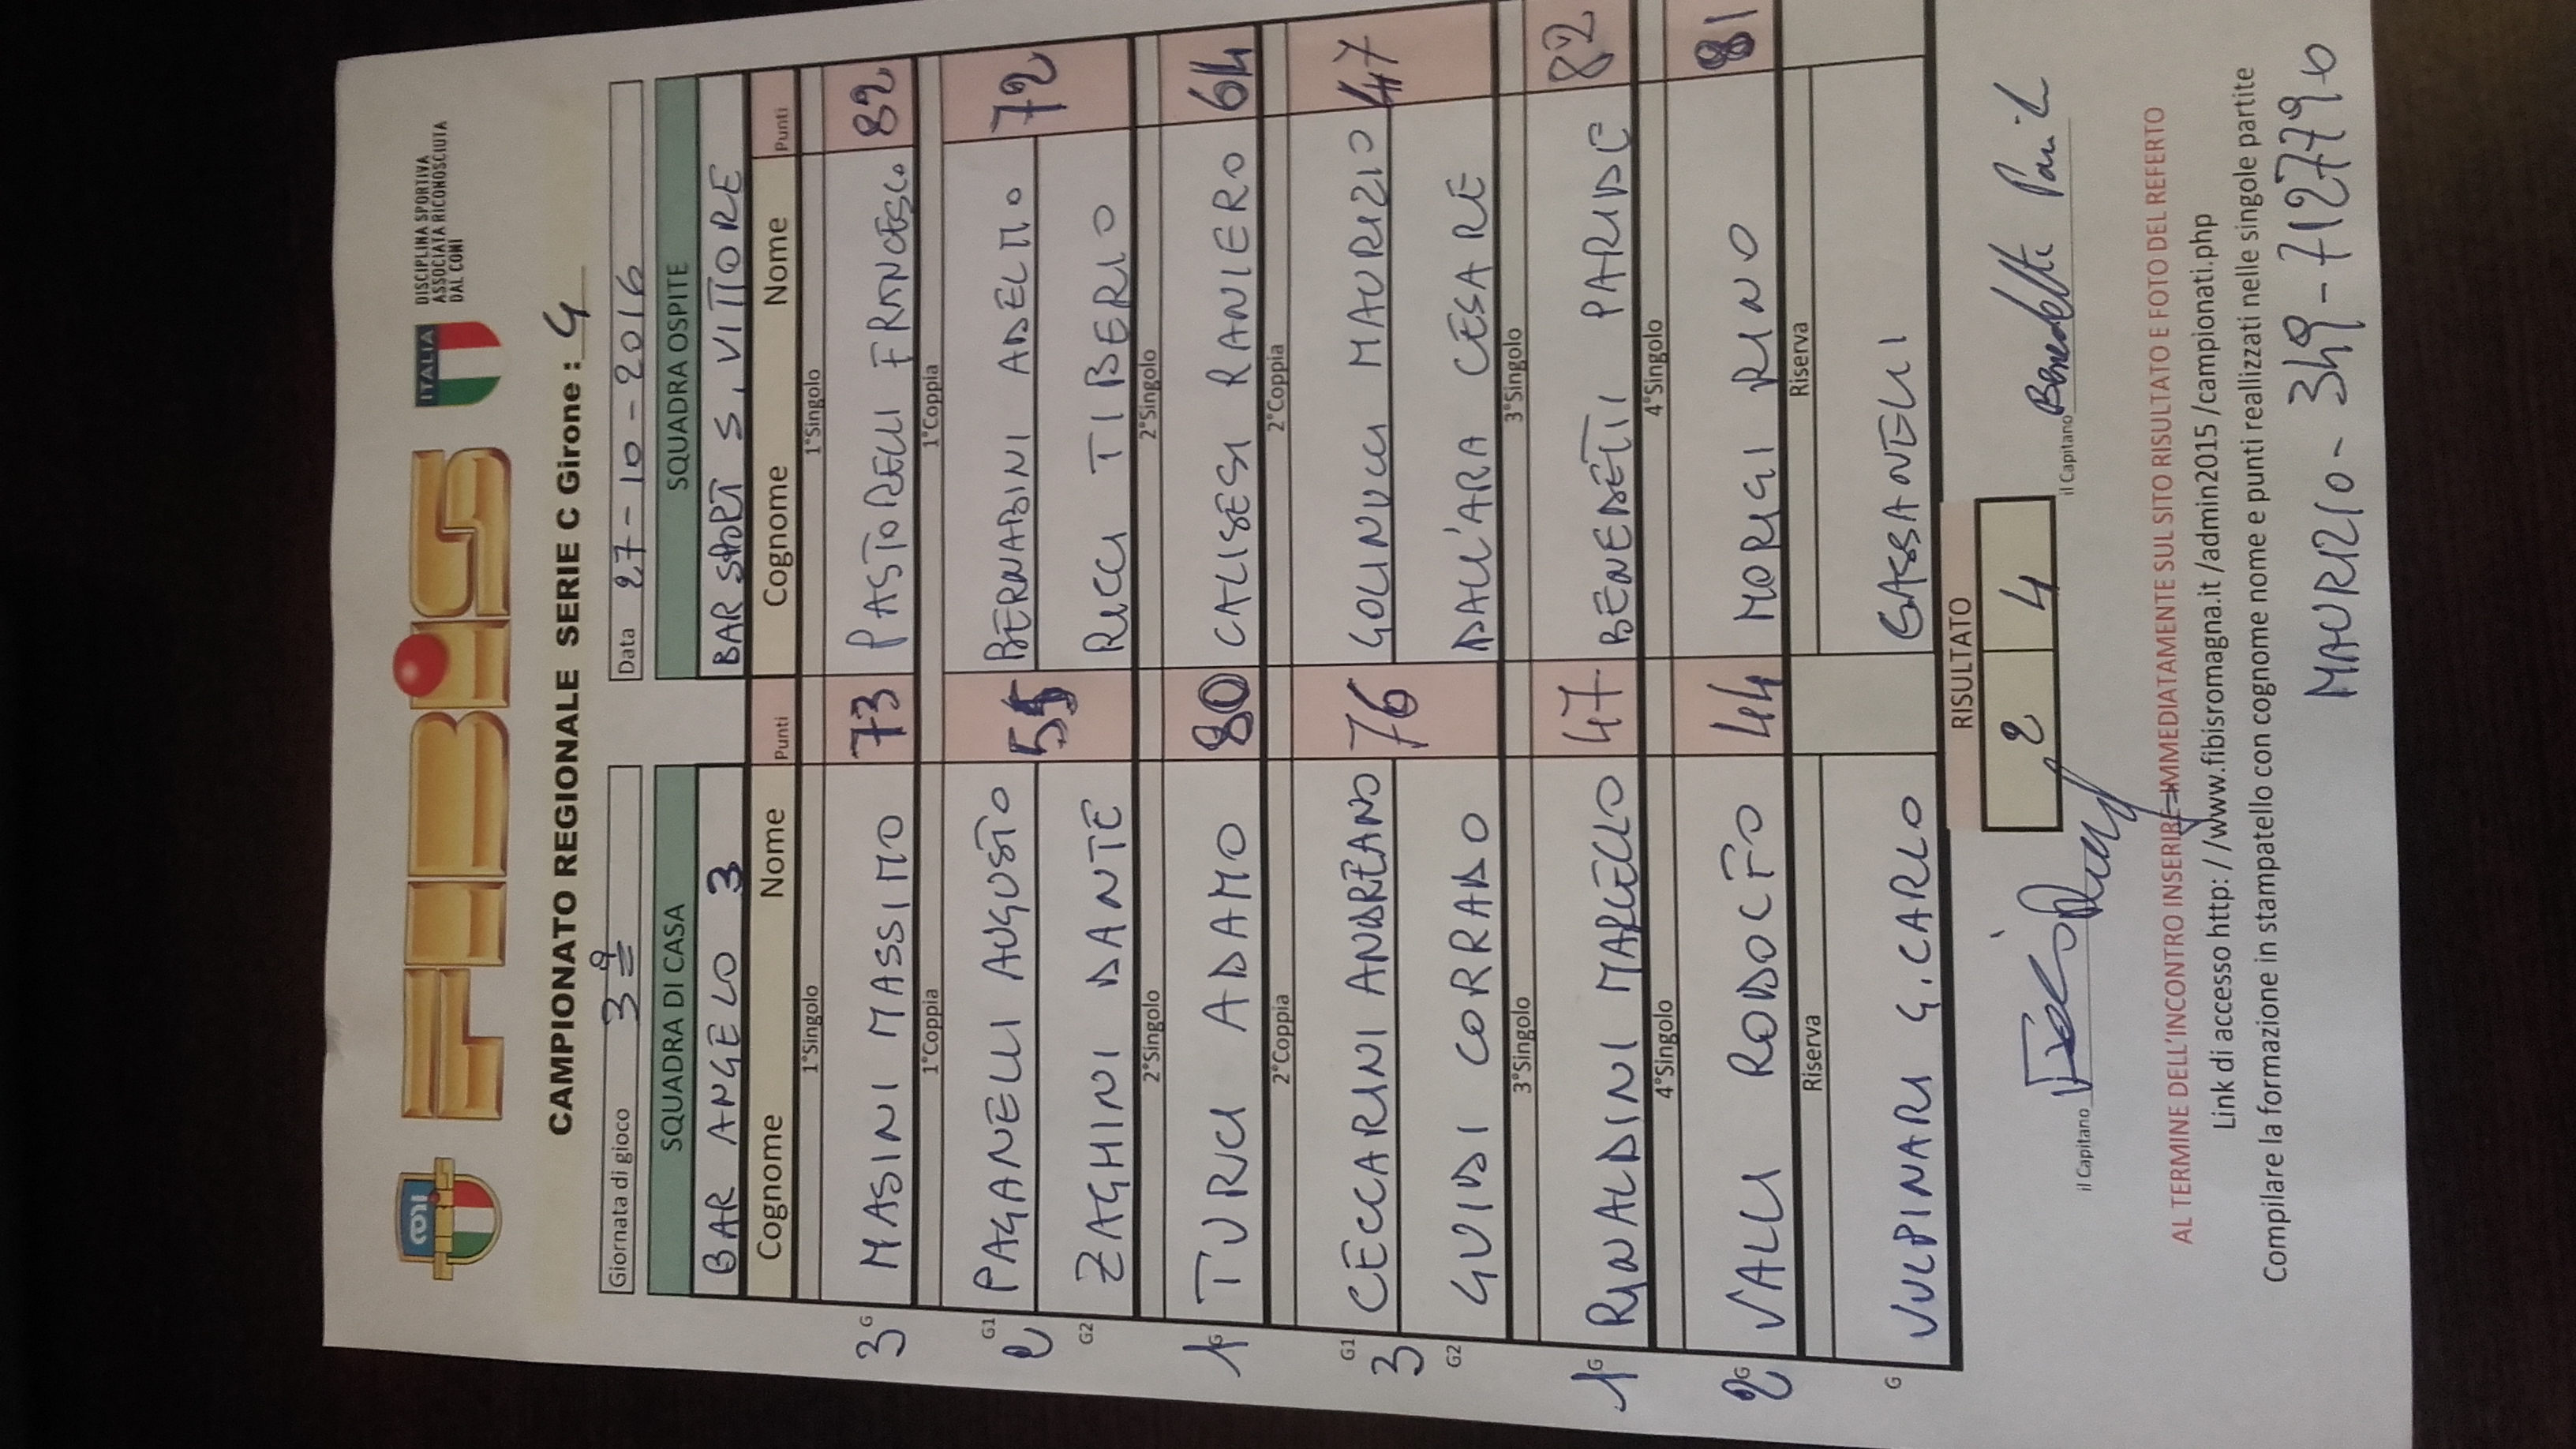 CONI
FIBiS
ITALIA
DISCIPLINA SPORTIVA
ASSOCIATA RICONOSCIUTA
DAL CONI
CAMPIONATO REGIONALE SERIE C Girone : 4
Giornata di gioco 3ª Data 27-10-2016
SQUADRA DI CASA SQUADRA OSPITE
BAR ANGELO 3 BAR SPORT S. VITTORE
Cognome Nome Punti Cognome Nome Punti
1°Singolo 1°Singolo
3 G MASINI MASSIMO 73 PASTORELLI FRANCESCO 82
1°Coppia 1°Coppia
2 G1 PAGANELLI AUGUSTO 55 BERNABINI ADELMO 72
G2 ZAGHINI DANTE RICCI TIBERIO
2°Singolo 2°Singolo
1 G TURCI ADAMO 80 CALISESI RANIERO 64
2°Coppia 2°Coppia
3 G1 CECCARINI ANDREANO 76 GOLINUCCI MAURIZIO 47
G2 GUIDI CORRADO DALL'ARA CESARE
3°Singolo 3°Singolo
1 G RINALDINI MARCELLO 47 BENEDETTI PARIDE 82
4°Singolo 4°Singolo
2 G VALLI RODOLFO 44 MORIGI RINO 81
Riserva Riserva
G VULPINARI G.CARLO CASSANELLI
RISULTATO
2 4
il Capitano il Capitano Benedetti
AL TERMINE DELL'INCONTRO INSERIRE IMMEDIATAMENTE SUL SITO RISULTATO E FOTO DEL REFERTO
Link di accesso http: / /www.fibisromagna.it /admin2015 /campionati.php
Compilare la formazione in stampatello con cognome nome e punti reallizzati nelle singole partite
MAURIZIO - 349-7127790